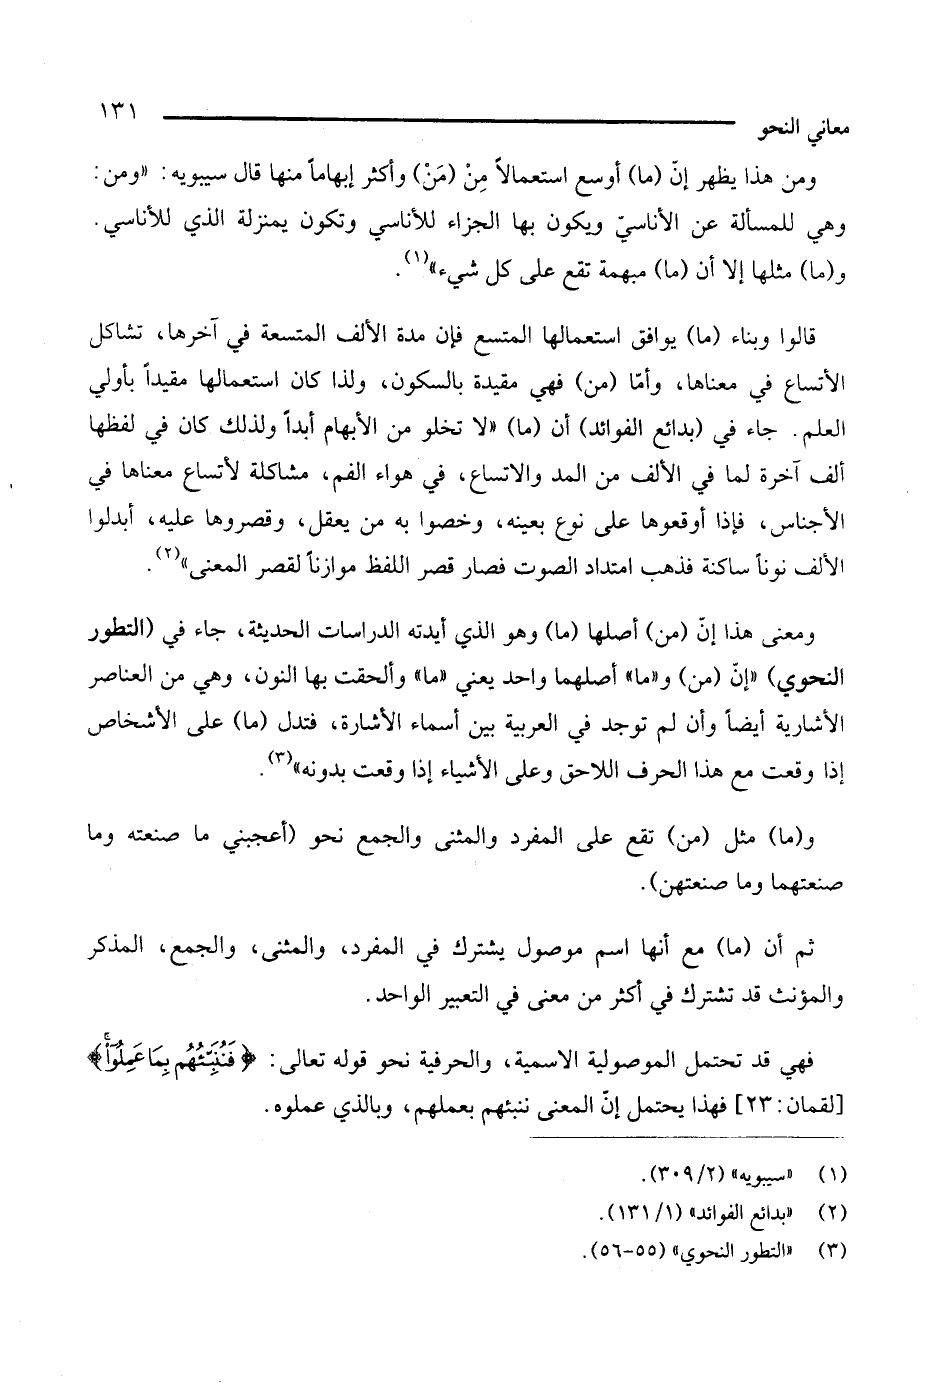 معاني النحو ١٣١
ومن هذا يظهر إنّ (ما) أوسع استعمالاً مِنْ (مَنْ) وأكثر إبهاماً منها قال سيبويه: «ومن:
وهي للمسألة عن الأناسيّ ويكون بها الجزاء للأناسي وتكون بمنزلة الذي للأناسي.
و(ما) مثلها إلا أن (ما) مبهمة تقع على كل شيء»(١).
قالوا وبناء (ما) يوافق استعمالها المتسع فإن مدة الألف المتسعة في آخرها، تشاكل
الأتساع في معناها، وأمّا (من) فهي مقيدة بالسكون، ولذا كان استعمالها مقيداً بأولي
العلم. جاء في (بدائع الفوائد) أن (ما) «لا تخلو من الأبهام أبداً ولذلك كان في لفظها
ألف آخرة لما في الألف من المد والاتساع، في هواء الفم، مشاكلة لأتساع معناها في
الأجناس، فإذا أوقعوها على نوع بعينه، وخصوا به من يعقل، وقصروها عليه، أبدلوا
الألف نوناً ساكنة فذهب امتداد الصوت فصار قصر اللفظ موازناً لقصر المعنى»(٢).
ومعنى هذا إنّ (من) أصلها (ما) وهو الذي أيدته الدراسات الحديثة، جاء في (التطور
النحوي) «إنّ (من) و«ما» أصلهما واحد يعني «ما» وألحقت بها النون، وهي من العناصر
الأشارية أيضاً وأن لم توجد في العربية بين أسماء الأشارة، فتدل (ما) على الأشخاص
إذا وقعت مع هذا الحرف اللاحق وعلى الأشياء إذا وقعت بدونه»(٣).
و(ما) مثل (من) تقع على المفرد والمثنى والجمع نحو (أعجبني ما صنعته وما
صنعتهما وما صنعتهن).
ثم أن (ما) مع أنها اسم موصول يشترك في المفرد، والمثنى، والجمع، المذكر
والمؤنث قد تشترك في أكثر من معنى في التعبير الواحد.
فهي قد تحتمل الموصولية الاسمية، والحرفية نحو قوله تعالى: ﴿فَنُنَبِّئُهُم بِمَا عَمِلُوٓا۟ۚ﴾
[لقمان: ٢٣] فهذا يحتمل إنّ المعنى ننبئهم بعملهم، وبالذي عملوه.
(١) «سيبويه» (٢/ ٣٠٩).
(٢) «بدائع الفوائد» (١/ ١٣١).
(٣) «التطور النحوي» (٥٥-٥٦).